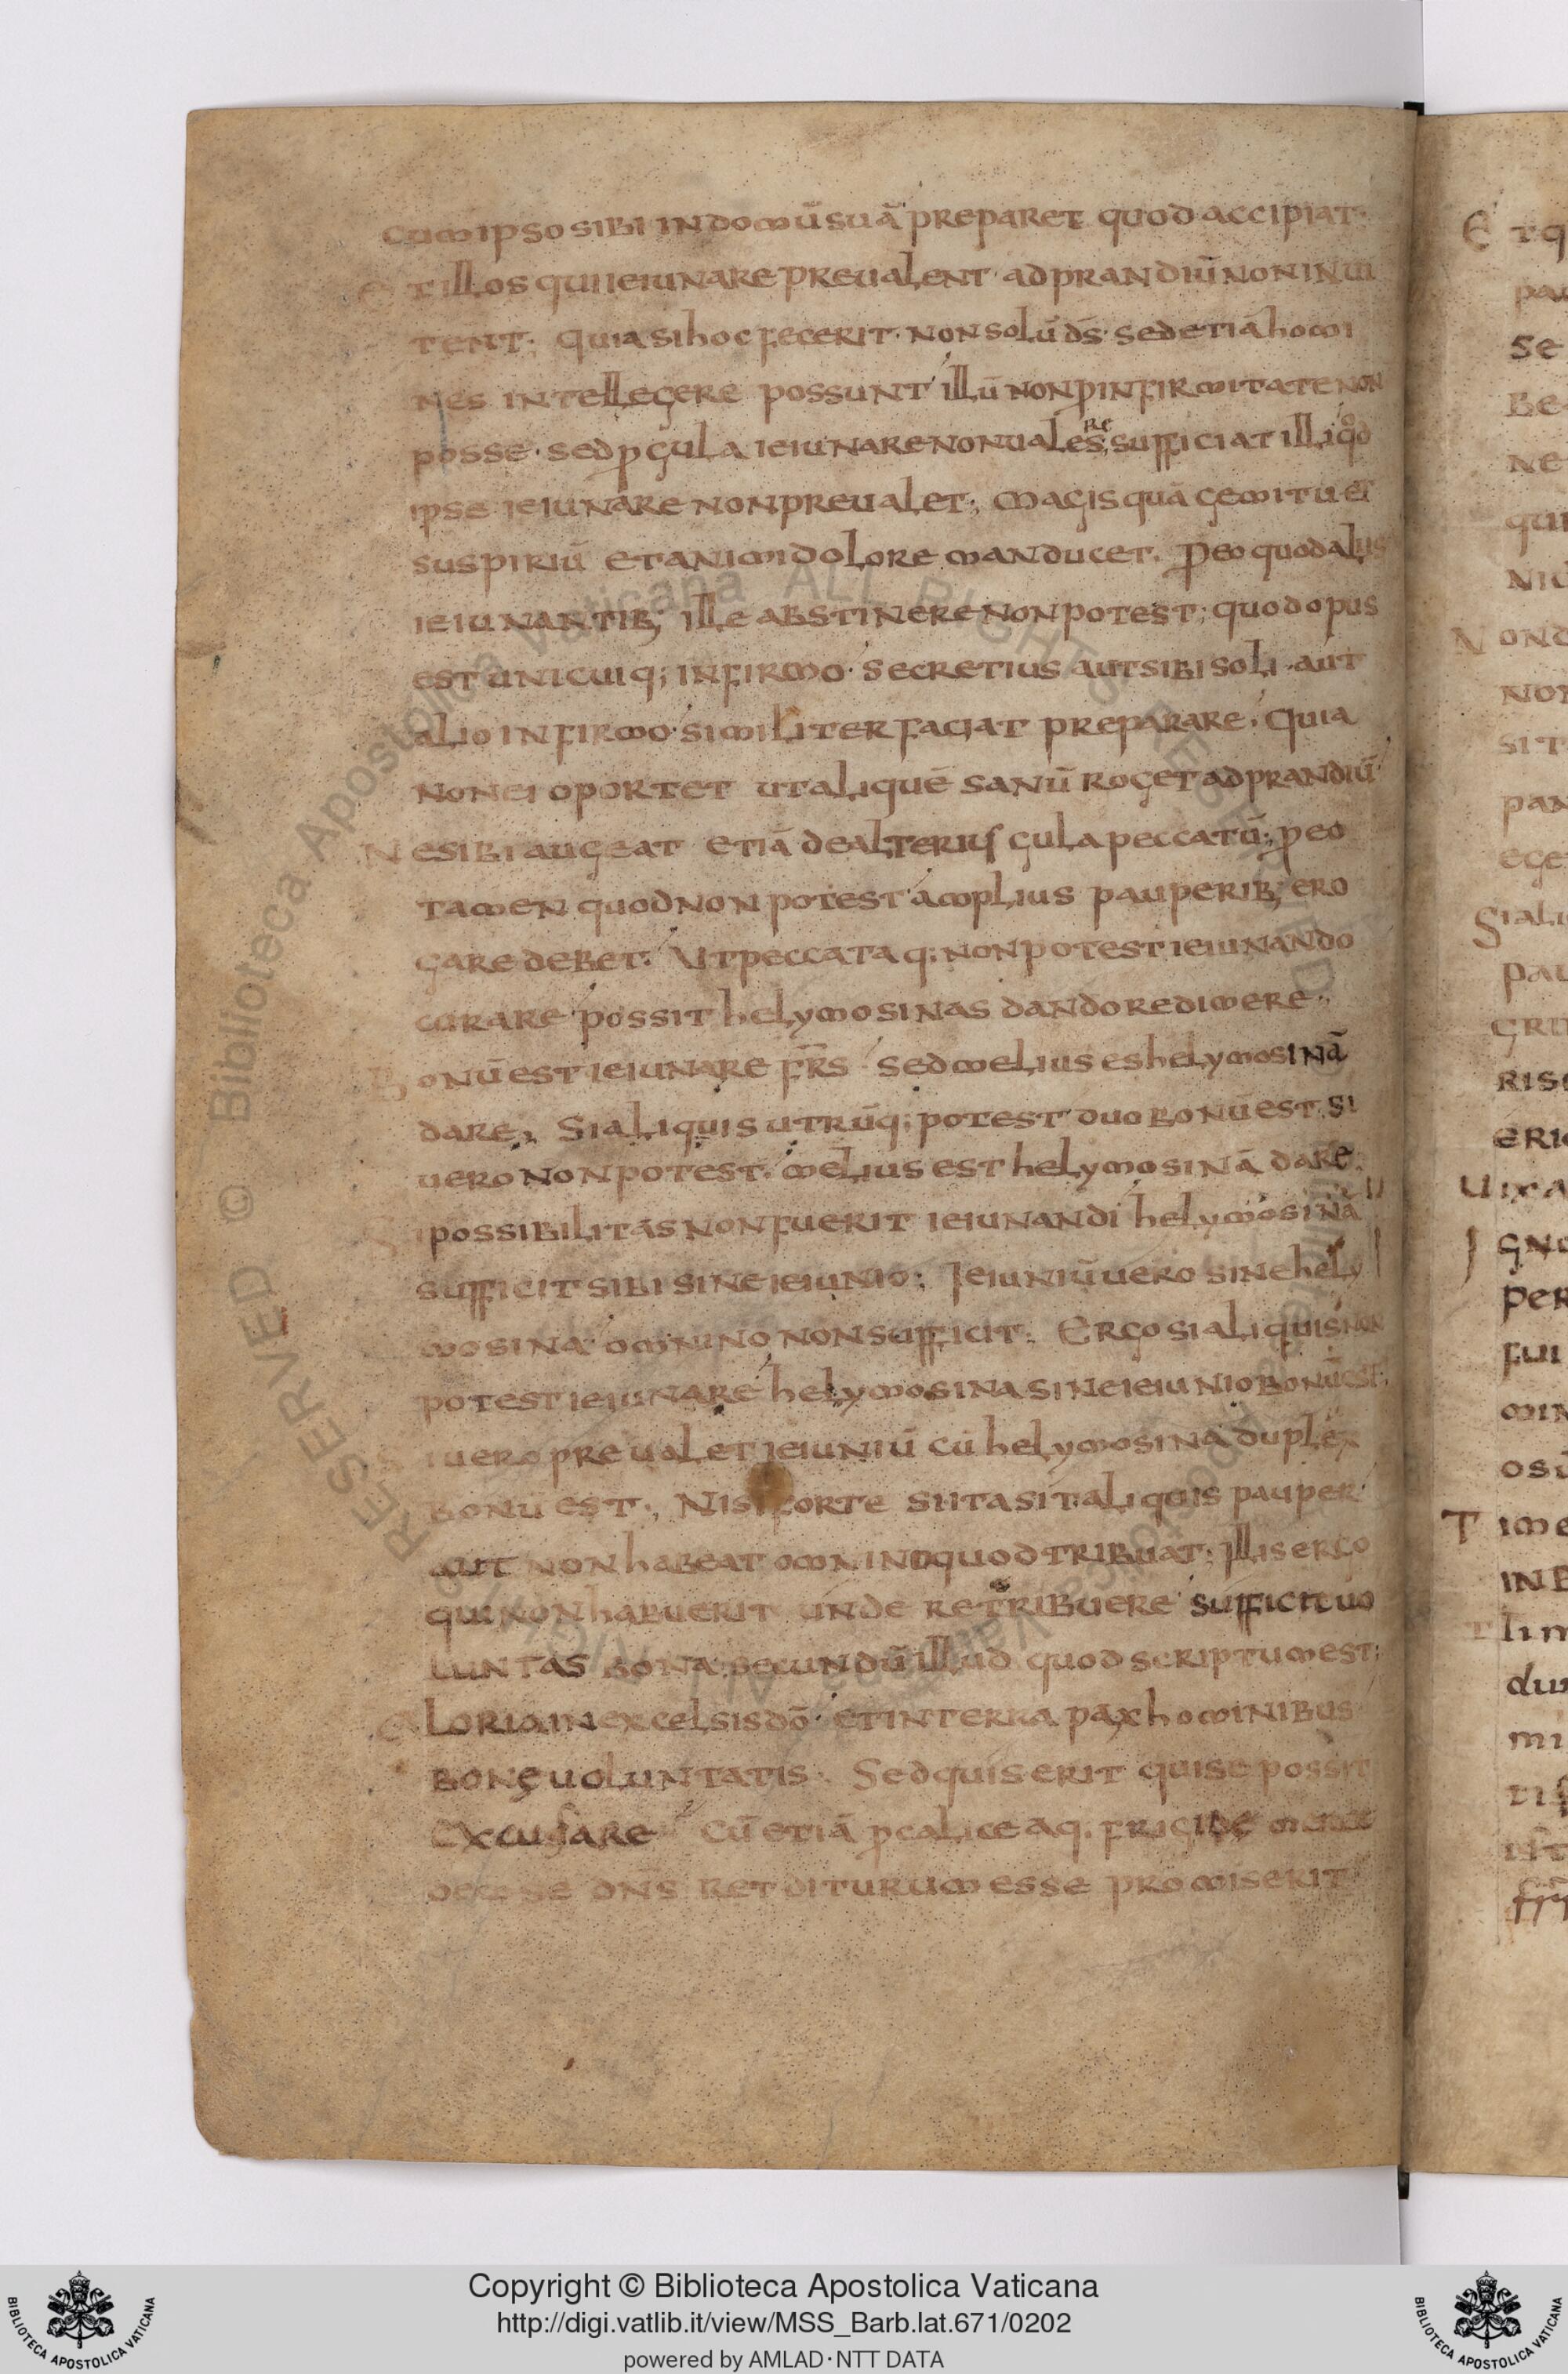 cumipso sibi in domū suā preparet quod accipiat·
Et illos qui ieiunare preualent· ad prandiū non inui
tent; quia si hoc fecerit· non solū ds̄· sed etiā homi
nes intellegere possunt illū non p infirmitate non
posse· sed p gula ieiunare non uales; re sufficiat illi qd
ipse ieiunare non preualet; magis quā gemitu et
suspiriū et animi dolore manducet. p eo quod aliis
ieiunantib; ille abstinere non potest; quod opus
est unicuiq; infirmo· secretius aut sibi soli· aut
alio infirmo· similiter faciat preparare· quia
non ei oportet ut aliquē sanū roget ad prandiū·
Ne sibi augeat etiā de alterius gula peccatū; p eo
tamen quod non potest amplius pauperib; ero
gare debet. Ut peccata q; non potest ieiunando
curare possit helymosinas dando redimere·
Bonū est ieiunare fr̄s· sed melius es helymosinā
dare; Si aliquis utrūq; potest duo bonū est si
uero non potest. melius est helymosinā dare.
Si possibilitas non fuerit ieiunandi helymosina
sufficit sibi sine ieiunio; Ieiuniū uero sine hely
mosina· omnino non sufficit. Ergo si aliquis non
potest ieiunare helymosina sine ieiunio bonū est.
i uero preualet ieiuniū cū helymosina duplex
bonū est; Nisi forte si ita sit aliquis pauper
aut non habeat omnino quod tribuat; illis ergo
qui non habuerit unde retribuere sufficit uo
luntas bona; secundū illud quod scriptum est;
Gloria in excelsis dō· et in terra pax hominibus
bonę uoluntatis. Sed quis erit qui se possit
excusare cū etiā p calice aq. frigidę merce
dem se dns̄ redditurum esse promiserit
Copyright © Biblioteca Apostolica Vaticana
http://digi.vatlib.it/view/MSS_Barb.lat.671/0202
powered by AMLAD·NTT DATA